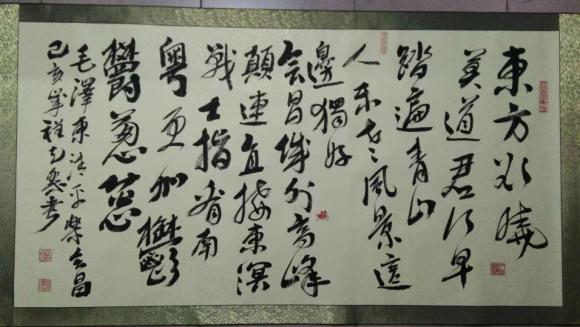 東方欲曉
莫道君行早
踏遍青山
人未老風景這
邊獨好
會昌城外高峰
顛連直接東溟
戰士指看南
粤更加鬱
鬱蔥蔥
毛澤東清平樂會昌
己亥年祥